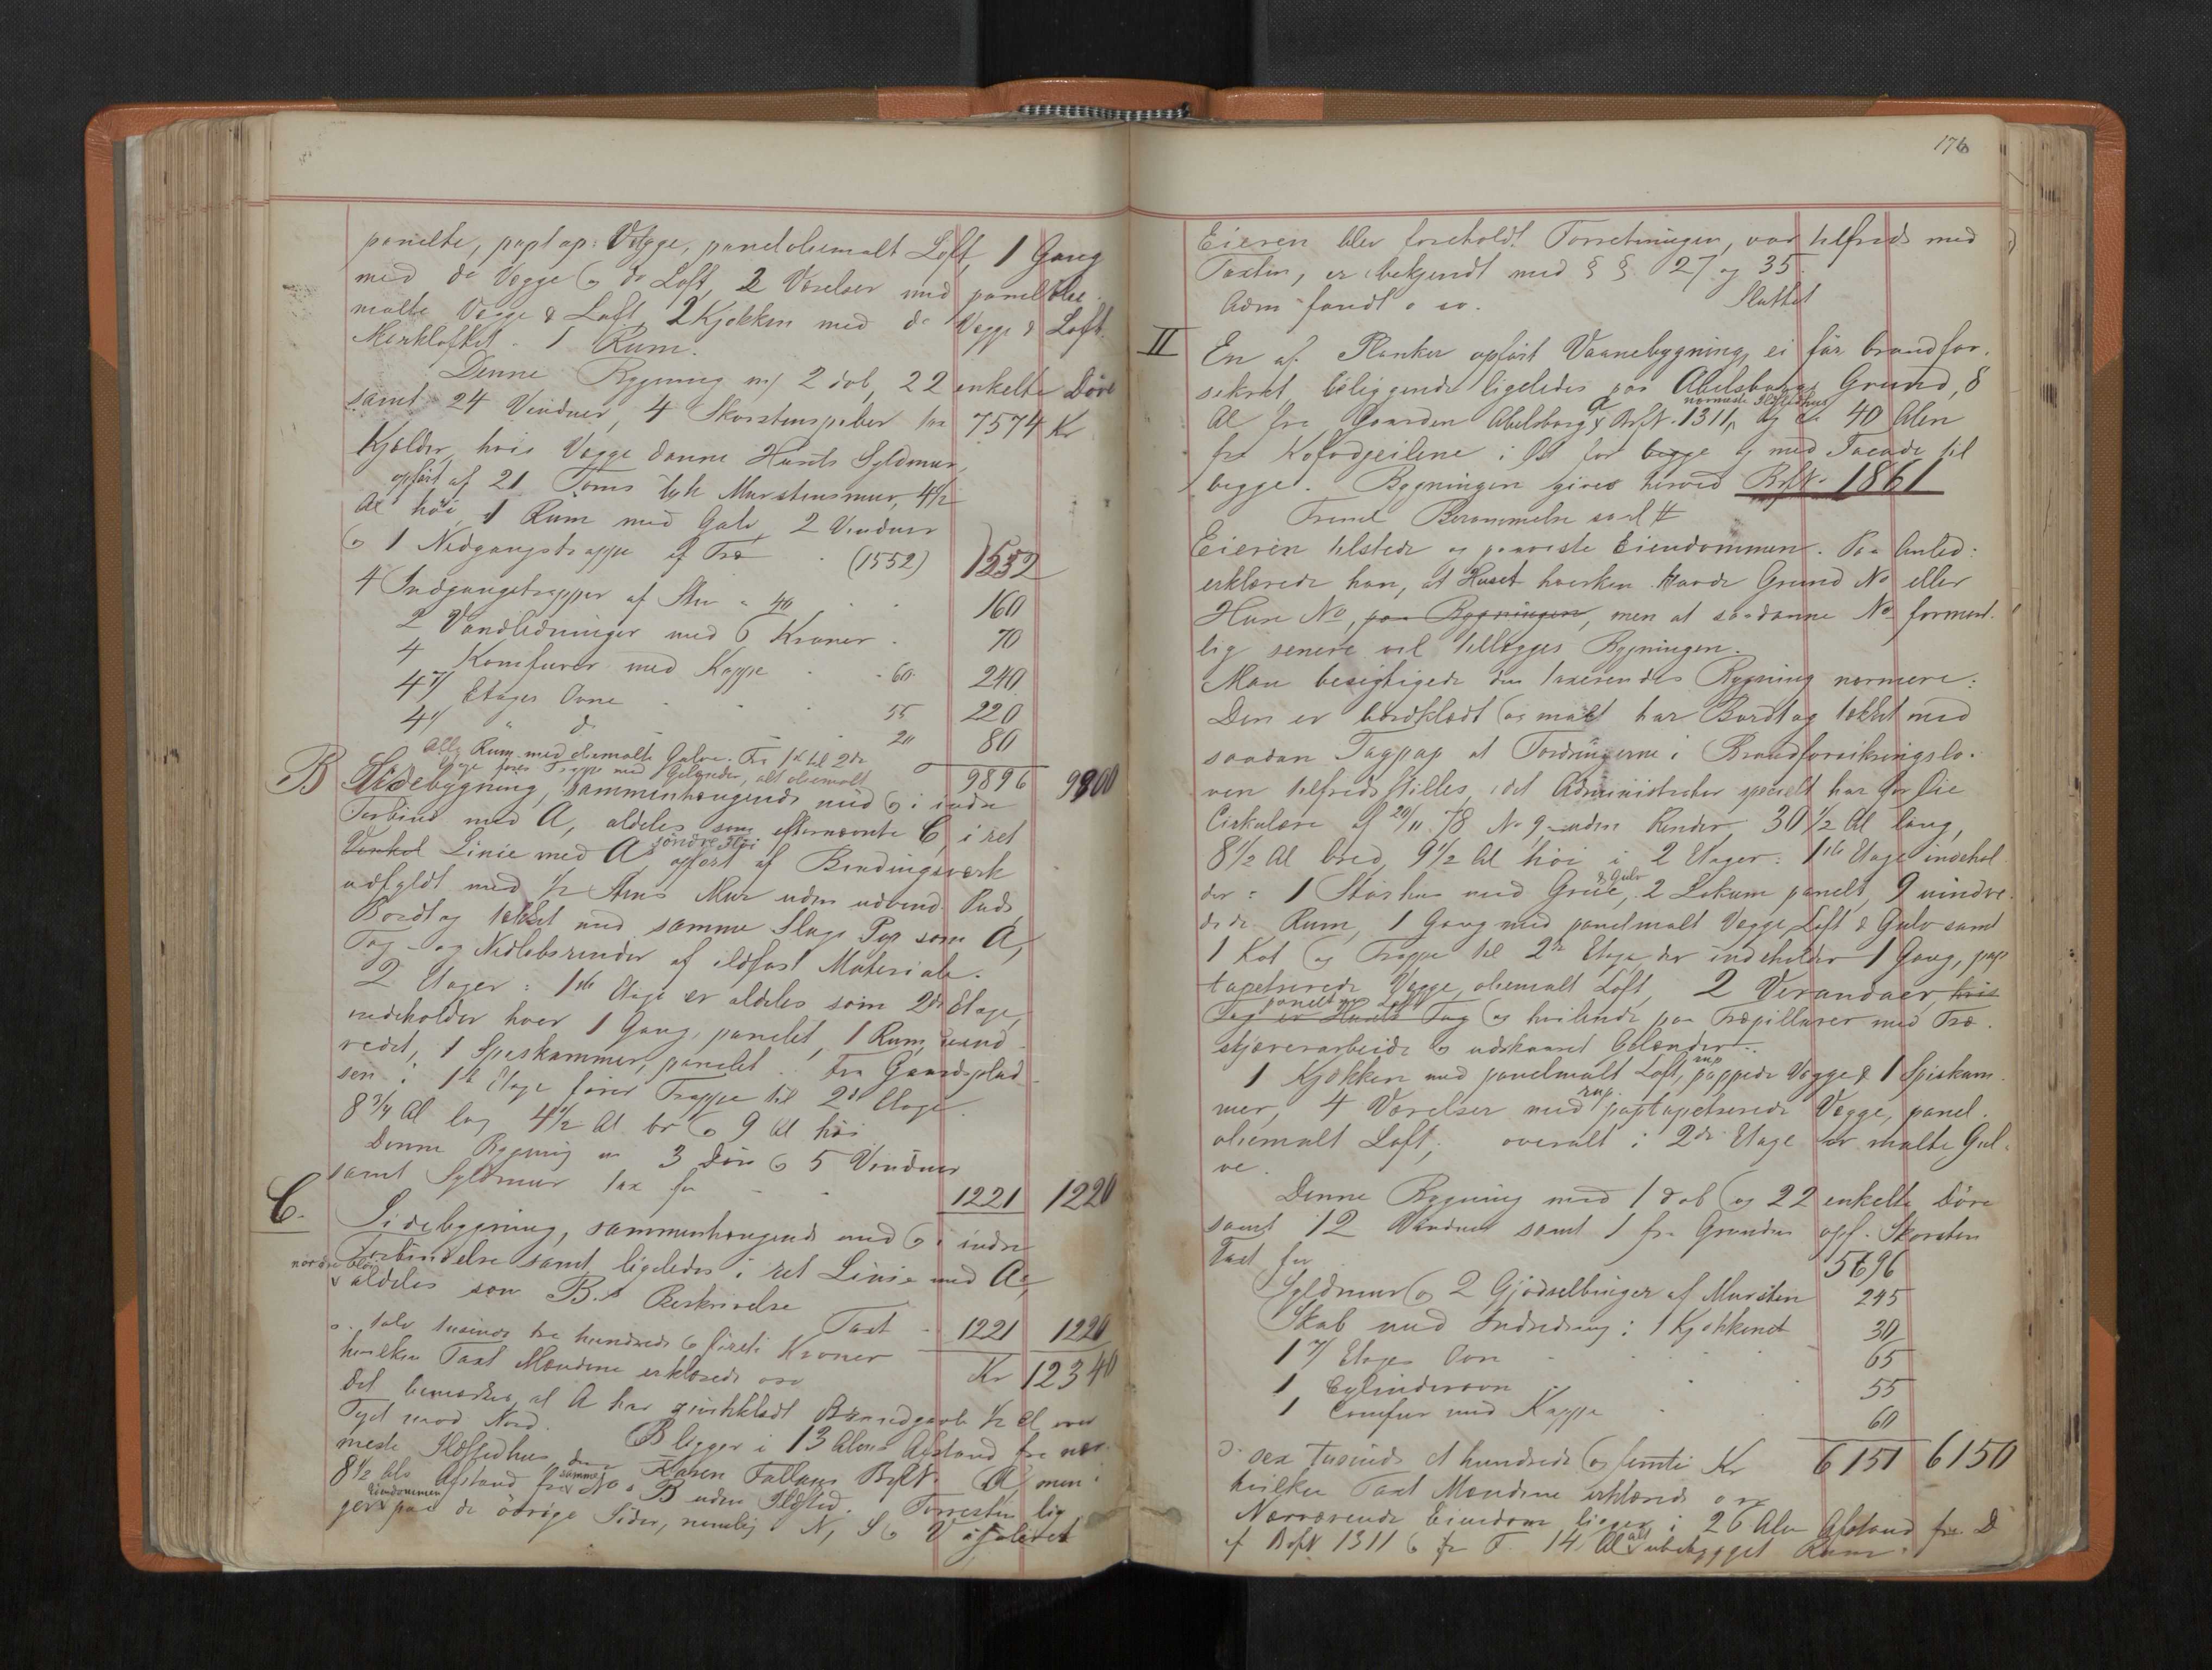 panelte, paptap: Vægge, paneloliemalt Loft, 1 Gang
med do Vægge og do Loft, 2 Værelser med panel olie
malte Vægge & Loft, 2 Kjøkken med do Vægge & Loft.
Mørkloftet. 1 Rum.
Denne Bygning m/ 2 dob, 22 enkelte Döre
samt 24 Vinduer, 4 Skorstenspiber tax 7574 Kr
Kjælder, hvis Vægge danne Husets Syldmur,
opfört af 21 Toms tyk Murstensmur, 4 1/2
Al höi, 1 Rum med Gulv, 2 Vinduer
og 1 Nedgangstrappe af Træ (1552) 1552
4 Indgangstrapper af Sten a 40 160
2 Vandledninger med 6 Kraner 70
4 Komfurer med Kappe 60 240
4 7/ Etages Ovne 55 220
4 4/ " do 20 80
Alle Rum med oliemalte Gulve. Fra 1ste til 2den
Etage förer Trappe med Gelænder, alt oliemalt 9896 9900
B Sidebygning, sammenhængende med og i indre
Forbind med A, aldeles som efternævnte C, i ret
Vinkel Linie med A's söndre Flöi opfört af Bindingsværk
udfyldt med 1/2 Stens Mur uden udvend. Puds,
Bordtag tækket med samme Slags Pap som A,
Tag- og Nedløbsrender af ildfast Materiale.
2 Etager: 1ste Etage er aldeles som 2den Etage,
indeholder hver 1 Gang, panelet, 1 Rum, uind
redet, 1 Spiskammer, panelet. Fra Gaardsplad
sen i 1ste Etage förer Trappe til 2den Etage.
8 3/4 Al lag 4 1/2 Al br og 9 Al höi
Denne Bygning m 3 Döre og 5 Vinduer
samt Syldmur tax for 1221 1220
C. Sidebygning, sammenhængende med og i indre
Forbindelse samt ligeledes i ret Linie med A's,
nordre Flöi aldeles som B.s Beskrivelse
Taxt 1221 1220
tolv tusinde tre hundrede og firti Kroner Kr 12340
hvilken Taxt Mændene erklærede osv
Det bemærkes at A har zinkklædt Brandgavl 1/2 Al over
Taget mod Nord. B ligger i 13 Alens Afstand fra nær
meste Ildstedhus, Karen Fallans BrfN. A, men i
8 1/2 Als Afstand fra samme No's B uden Ildsted. Forresten lig
ger Eiendommen paa de övrige Sider, nemlig N, S og V isoleret
176
Eieren blev foreholdt Forretningen, var tilfreds med
Taxten, er bekjendt med § § 27 og 35.
Adm fandt o sv. Sluttet
II En af Planker opfört Vaanebygning, ei för brandfor
sikret, beliggende ligeledes paa Abelsborgs Grund, 8
Al fra Gaarden Abelsborg's BrfN. 1311, nærmeste Ildstedhus og ca 40 Alen
fra Kofodgeilene i Öst for begge og med Facade til
begge. Bygningen gives herved BrfN. 1861
Freml Berammelse saal #
Eieren tilstede og paaviste Eiendommen. Paa Anled:
erklærede han, at Huset hverken havde Grund No eller
Hus No, paa Bygningen, men at saadanne No forment
lig senere vil tillægges Bygningen.
Man besigtigede den taxerendes Bygning nærmere:
Den er bordklædt og malt har Bordtag tækket med
saadan Tagpap at Fordringerne i Brandforsikringslo
ven tilfredsstilles, idet Administrator specielt har for Øie
Cirkulære af 20/11 78 No 9, uden Render, 30 1/2 Al lang,
8 1/2 Al bred, 9 1/2 Al höi i 2 Etager: 1ste Etage indehol
der: 1 Storhus med Grue, & Gulv 2 Lokum panelt, 9 uindre
dede Rum, 1 Gang med panelmalt Vægge, Loft & Gulv samt
1 Kot og Trappe til 2den Etage, der indeholder 1 Gang, pap
tapetserede Vægge, oliemalt Loft, 2 Verandaer, hvis
Tag er Husets Tag panelt Loft og hvilende paa Træpillarer med Træ
skjærerarbeide og udskaaret Gelænder.
1 Kjøkken med panelmalt Loft, pappede Vægge & 1 Spiskam
mer, 4 Værelser med paptapetserede Vægge, panel
oliemalt Loft, overalt i 2den Etage er malte Gul
ve.
Denne Bygning med 1 dob og 22 enkelte Döre
samt 12 Vinduer samt 1 fra Grunden opf. Skorsten
Taxt for 5696
Syldmur og 2 Gjödselbinger af Mursten 245
Skab med Indredning i 1 Kjøkkenet 30
1 7/ Etages Ovn 65
1 Cylinderovn 55
1 Comfur med Kappe 60
sex tusinde et hundrede og femti Kr 6151 6150
hvilken Taxt Mændene erklærede osv
Nærværende Eiendom ligger i 26 Alens Afstand fra D
af BrfN 1311 og fra F. 14 Al alt ubebygget Rum.